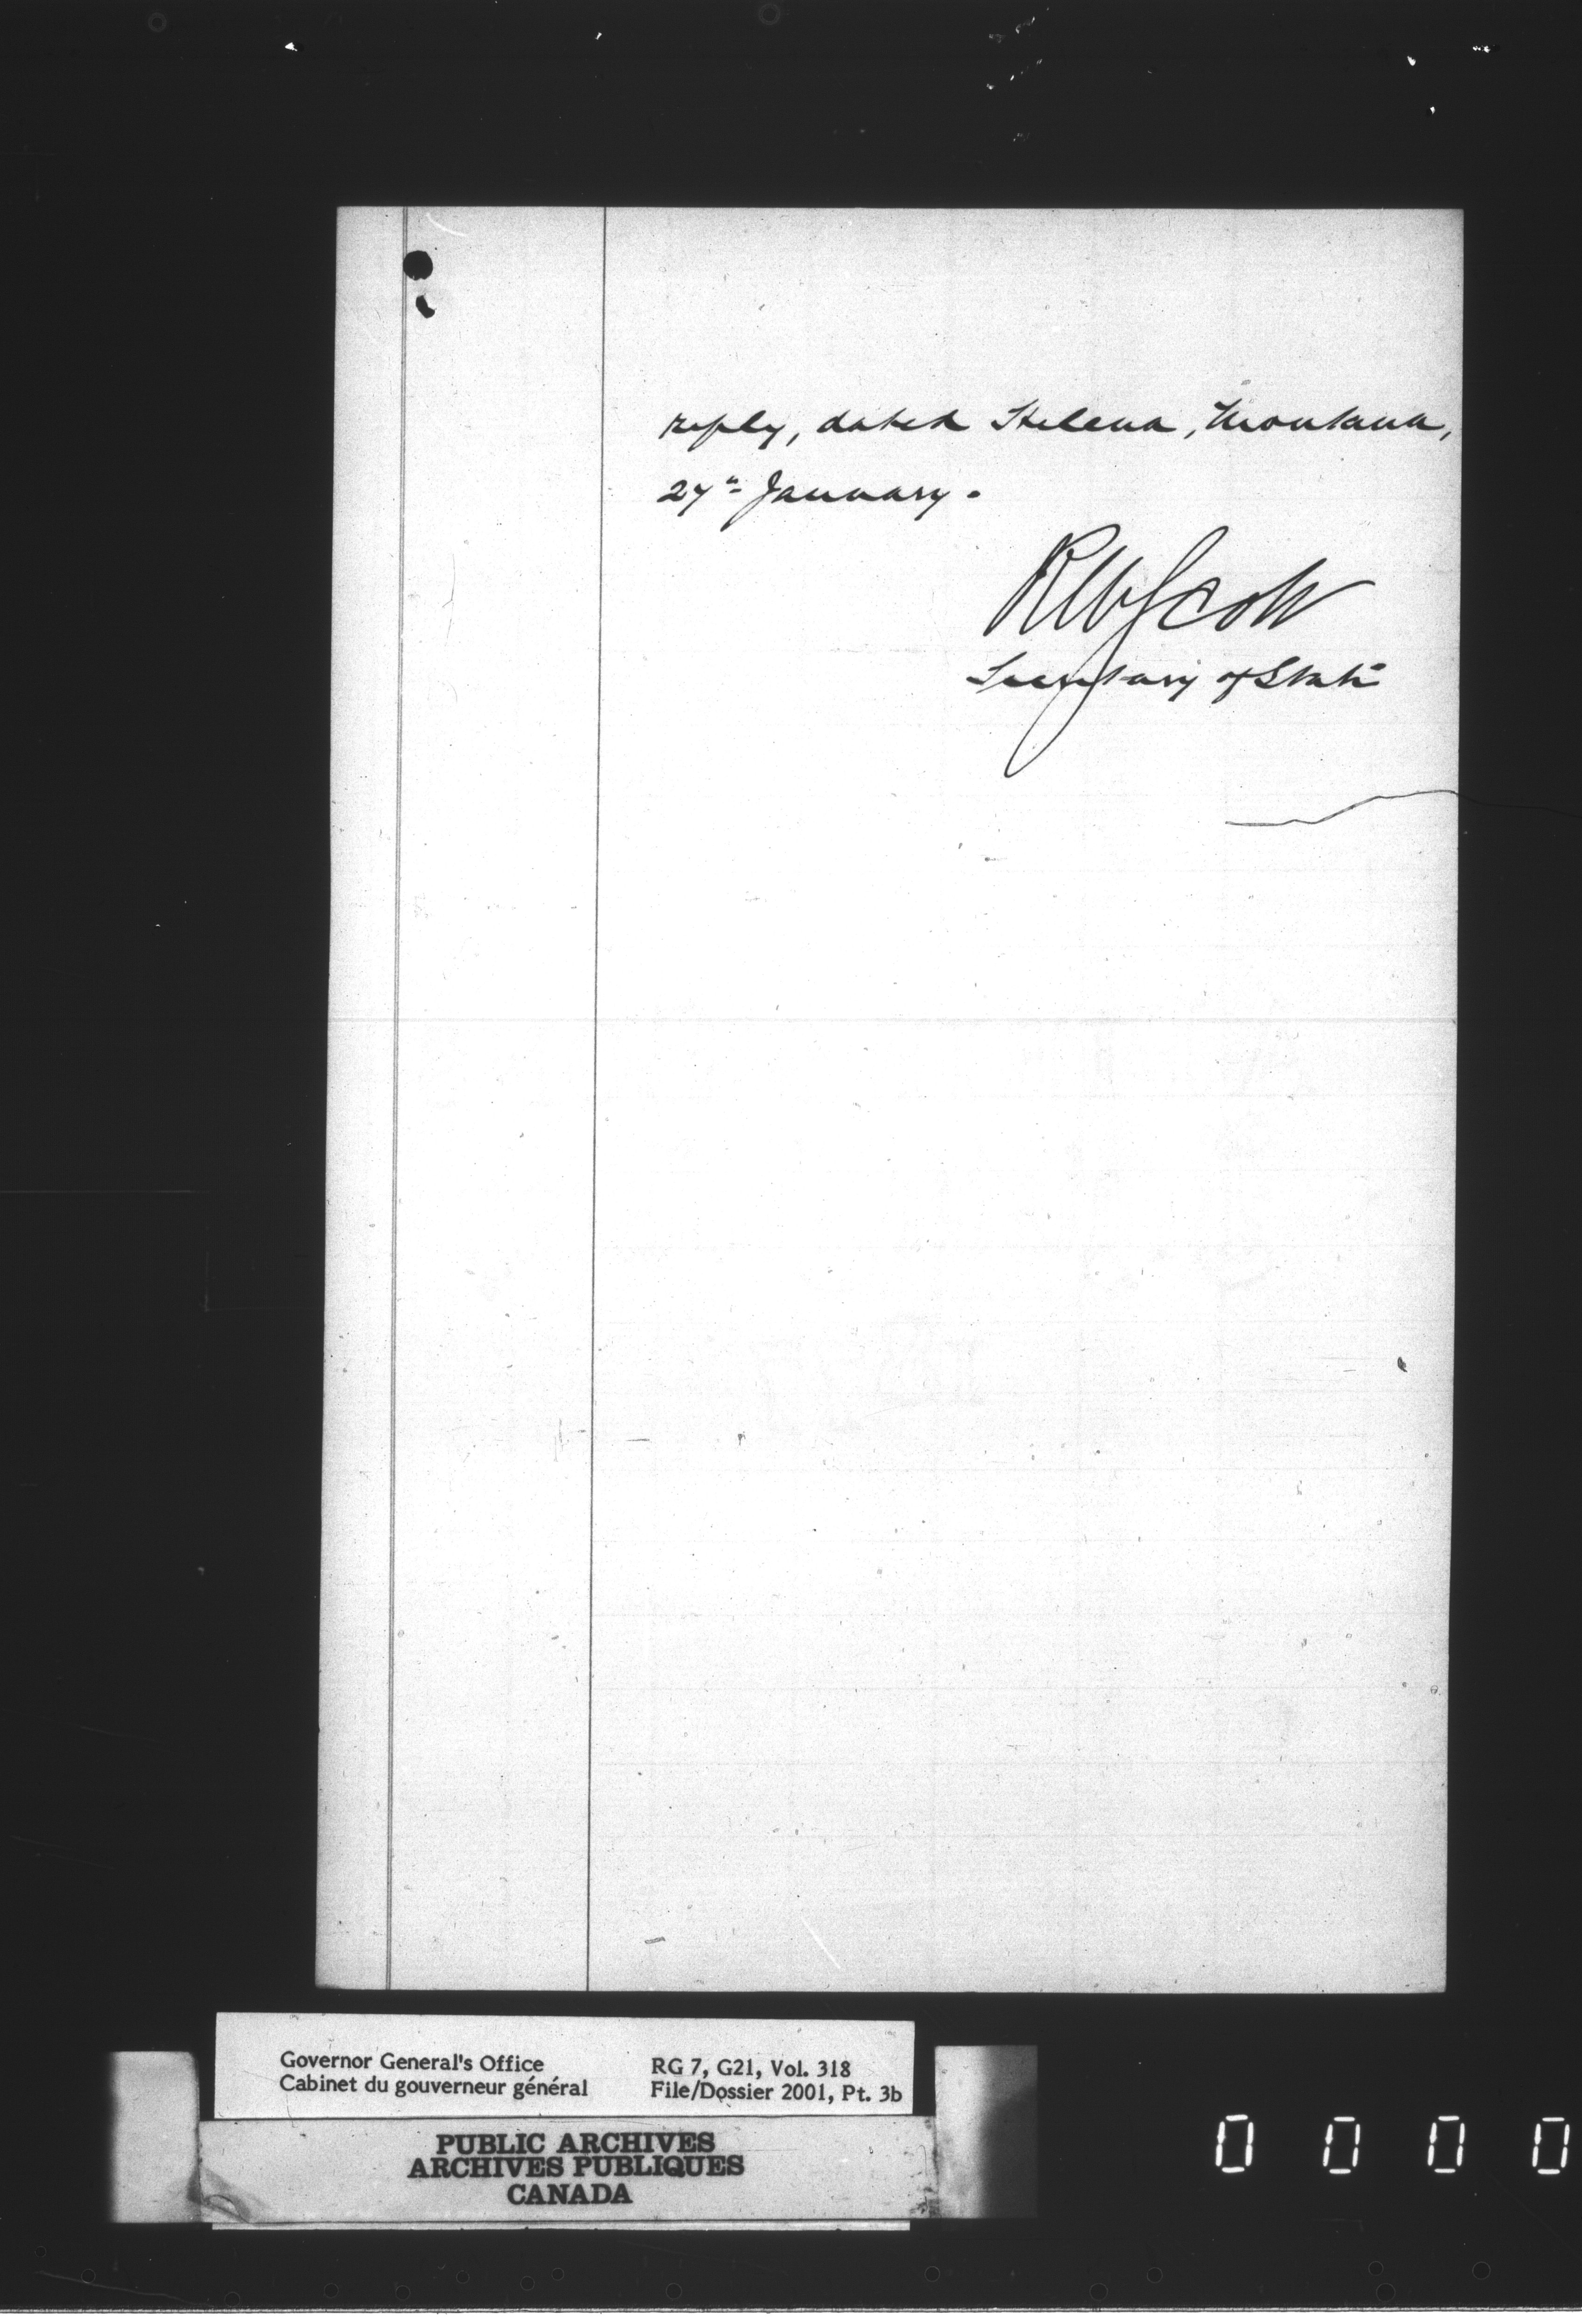 reply, dated Helena, Montana,
27th January.
RWScott
Secretary of State
Governor General's Office
Cabinet du gouverneur général
RG 7, G21, Vol. 318
File/Dossier 2001, Pt. 3b
PUBLIC ARCHIVES
ARCHIVES PUBLIQUES
CANADA
0 0 0 0